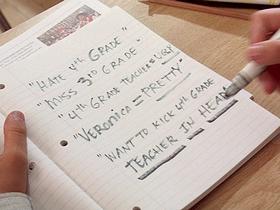 "HATE 4th GRADE"
"MISS 3rd GRADE"
"4th GRADE TEACHER = UGLY
"VERONICA = PRETTY"
"WANT TO KICK 4th GRADE
TEACHER IN HEAD